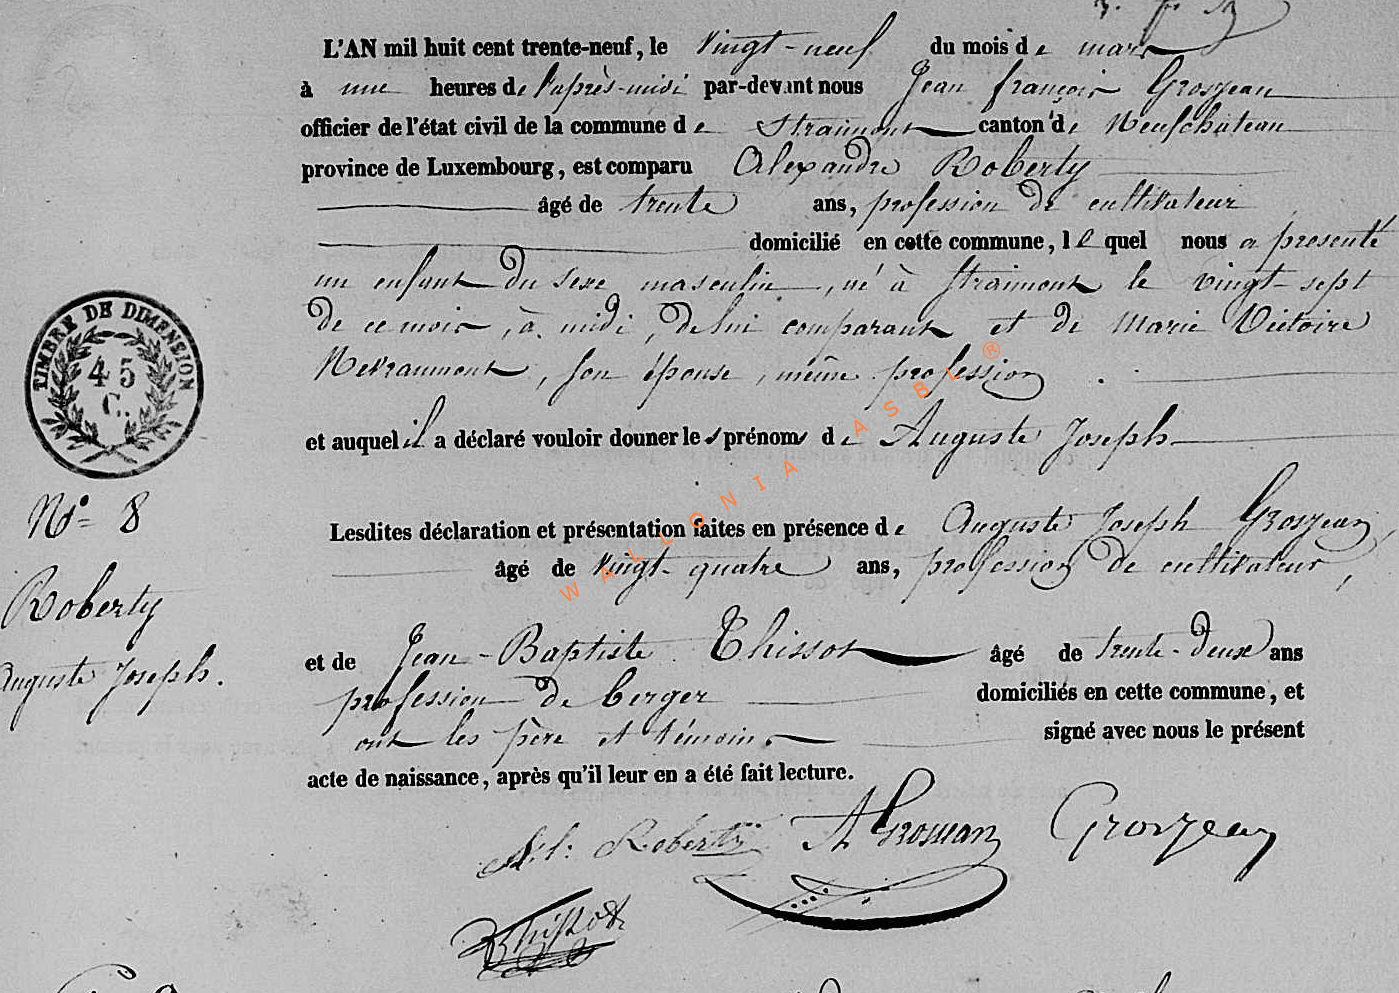 L'AN mil huit cent trente-neuf, le vingt-neuf du mois de mars
à une heures de l'après-midi par-devant nous Jean françois Grosjean
officier de l'état civil de la commune de Straimont canton de Neufchateau
province de Luxembourg, est comparu Alexandre Roberty
âgé de trente ans, profession de cultivateur
domicilié en cette commune, lequel nous a présenté
un enfant du sexe masculin, né à Straimont le vingt-sept
de ce mois, à midi, de lui comparant et de Marie Victoire
Nevraumont, son épouse, même profession.
et auquel il a déclaré vouloir donner les prénoms de Auguste Joseph
Lesdites déclaration et présentation faites en présence de Auguste Joseph Grosjean,
âgé de vingt-quatre ans, profession de cultivateur,
et de Jean-Baptiste Thissot âgé de trente-deux ans
profession de berger domiciliés en cette commune, et
ont les père et témoins signé avec nous le présent
acte de naissance, après qu'il leur en a été fait lecture.
Al. Roberty A Grosjean Grosjean
Thissot
TIMBRE DE DIMENSION
45
C.
N° 8
Roberty
Auguste Joseph.
WALLONIA ASBL ®